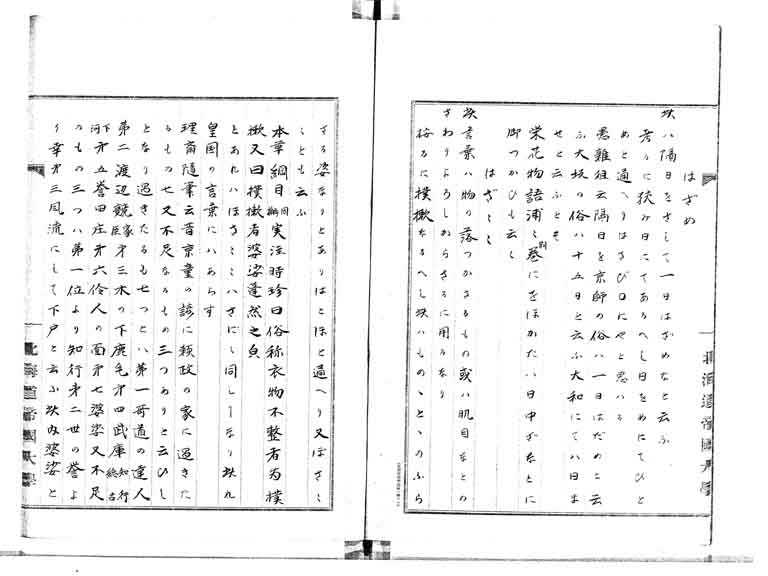 はざめ
此ハ隔日をさして一日はざめなと云ふ
考るに狭ケ日にてあるへし日をめにてひと
めと通へりはさび口にやと思ハる
愚雑俎云隔日を京師の俗ハ一日はだめこ云
ふ大坂の俗ハ十五日と云ふ大和にてハ日ま
せと云ふとそ
栄花物語浦々別巻にをほかたハ日中ざなとに
御つかひも云〻
はざ〻〻
此言葉ハ物の落つかさるもの或ハ肌目なとの
さわりよろしからさるに用るなり
按るに樸樕なるへし此ハものゝとゝのふら
さる姿なりとありはとほと通へり又ぼさ〻
〻とも云ふ
本草綱目樕実注時珍曰俗称衣物不整者为樸
樕又曰樸樕者婆娑蓬然之皃
とあれハほさ〻〻ハさにし同しきなり此れ
皇国の言葉にハあらす
理斎随筆云昔京童の諺に頼政の家に過きた
るもの七又不足なるもの三つありと云ひし
となり過きたるも七つとハ第一哥道の達人
第二渡辺競家臣第三木の下鹿毛第四武庫知行
下河第五誉田庄第六伶人の面第七婆娑又不足
のもの三つハ第一位より知行第二世の誉よ
り幸第三風流にして下戸と云ふ此内婆娑と
北海道帝國大學
北海道帝國大學